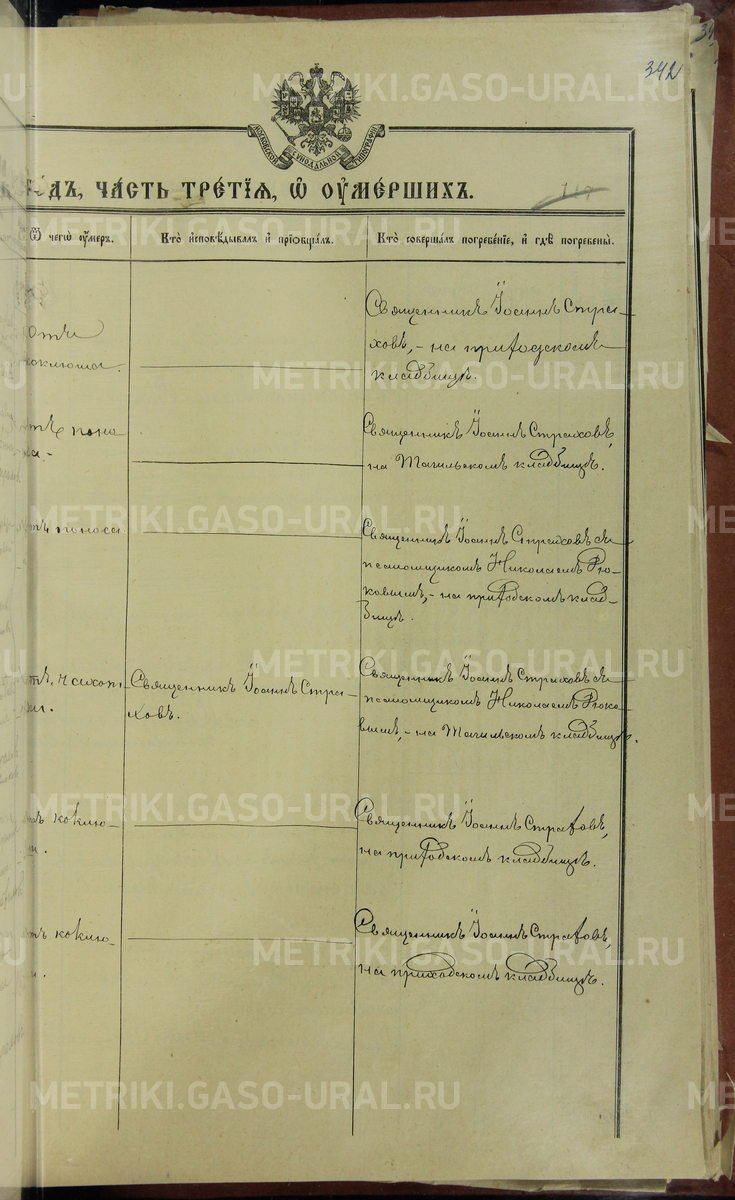 342
МОСКОВСКОЙ СѶНОДАЛЬНОЙ ТИПОГРАФІИ
ДЪ, ЧА́СТЬ ТРЕ́ТІЯ, Ѽ ОУ҆МЕ́РШИХЪ.
Ѿ чегѡ̀ оу҆́меръ.
Кто̀ и҆сповѣ́дывалъ и҆ прїѡбща́лъ.
Кто̀ соверша́лъ погребе́нїе, и҆ гдѣ̀ погребены̀.
Отъ
коклюша.
Священникъ Іоаннъ Стра-
ховъ, - на приходскомъ
кладбищѣ.
отъ поно
са.-
Священникъ Іоаннъ Страховъ,
на Тагильскомъ кладбищѣ.
отъ поноса
Священникъ Іоаннъ Страховъ съ
псаломщикомъ Николаемъ Рю-
ковымъ, - на приходскомъ клад-
бищѣ.
отъ чахот-
ки.
Священникъ Іоаннъ Стра-
ховъ.
Священникъ Іоаннъ Страховъ съ
псаломщикомъ Николаемъ Рюко-
вымъ, - на Тагильскомъ кладбищѣ.
отъ коклю-
Священникъ Іоаннъ Страховъ,
на приходскомъ кладбищѣ.
отъ коклю-
Священникъ Іоаннъ Страховъ,
на приходскомъ кладбищѣ.
METRIKI.GASO-URAL.RU